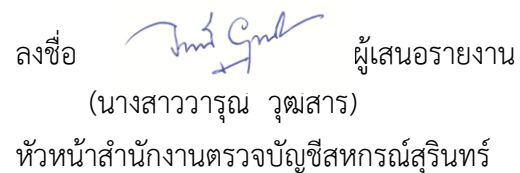 ลงชื่อ ผู้เสนอรายงาน
(นางสาววารุณ วุฒสาร)
หัวหน้าสำนักงานตรวจบัญชีสหกรณ์สุรินทร์